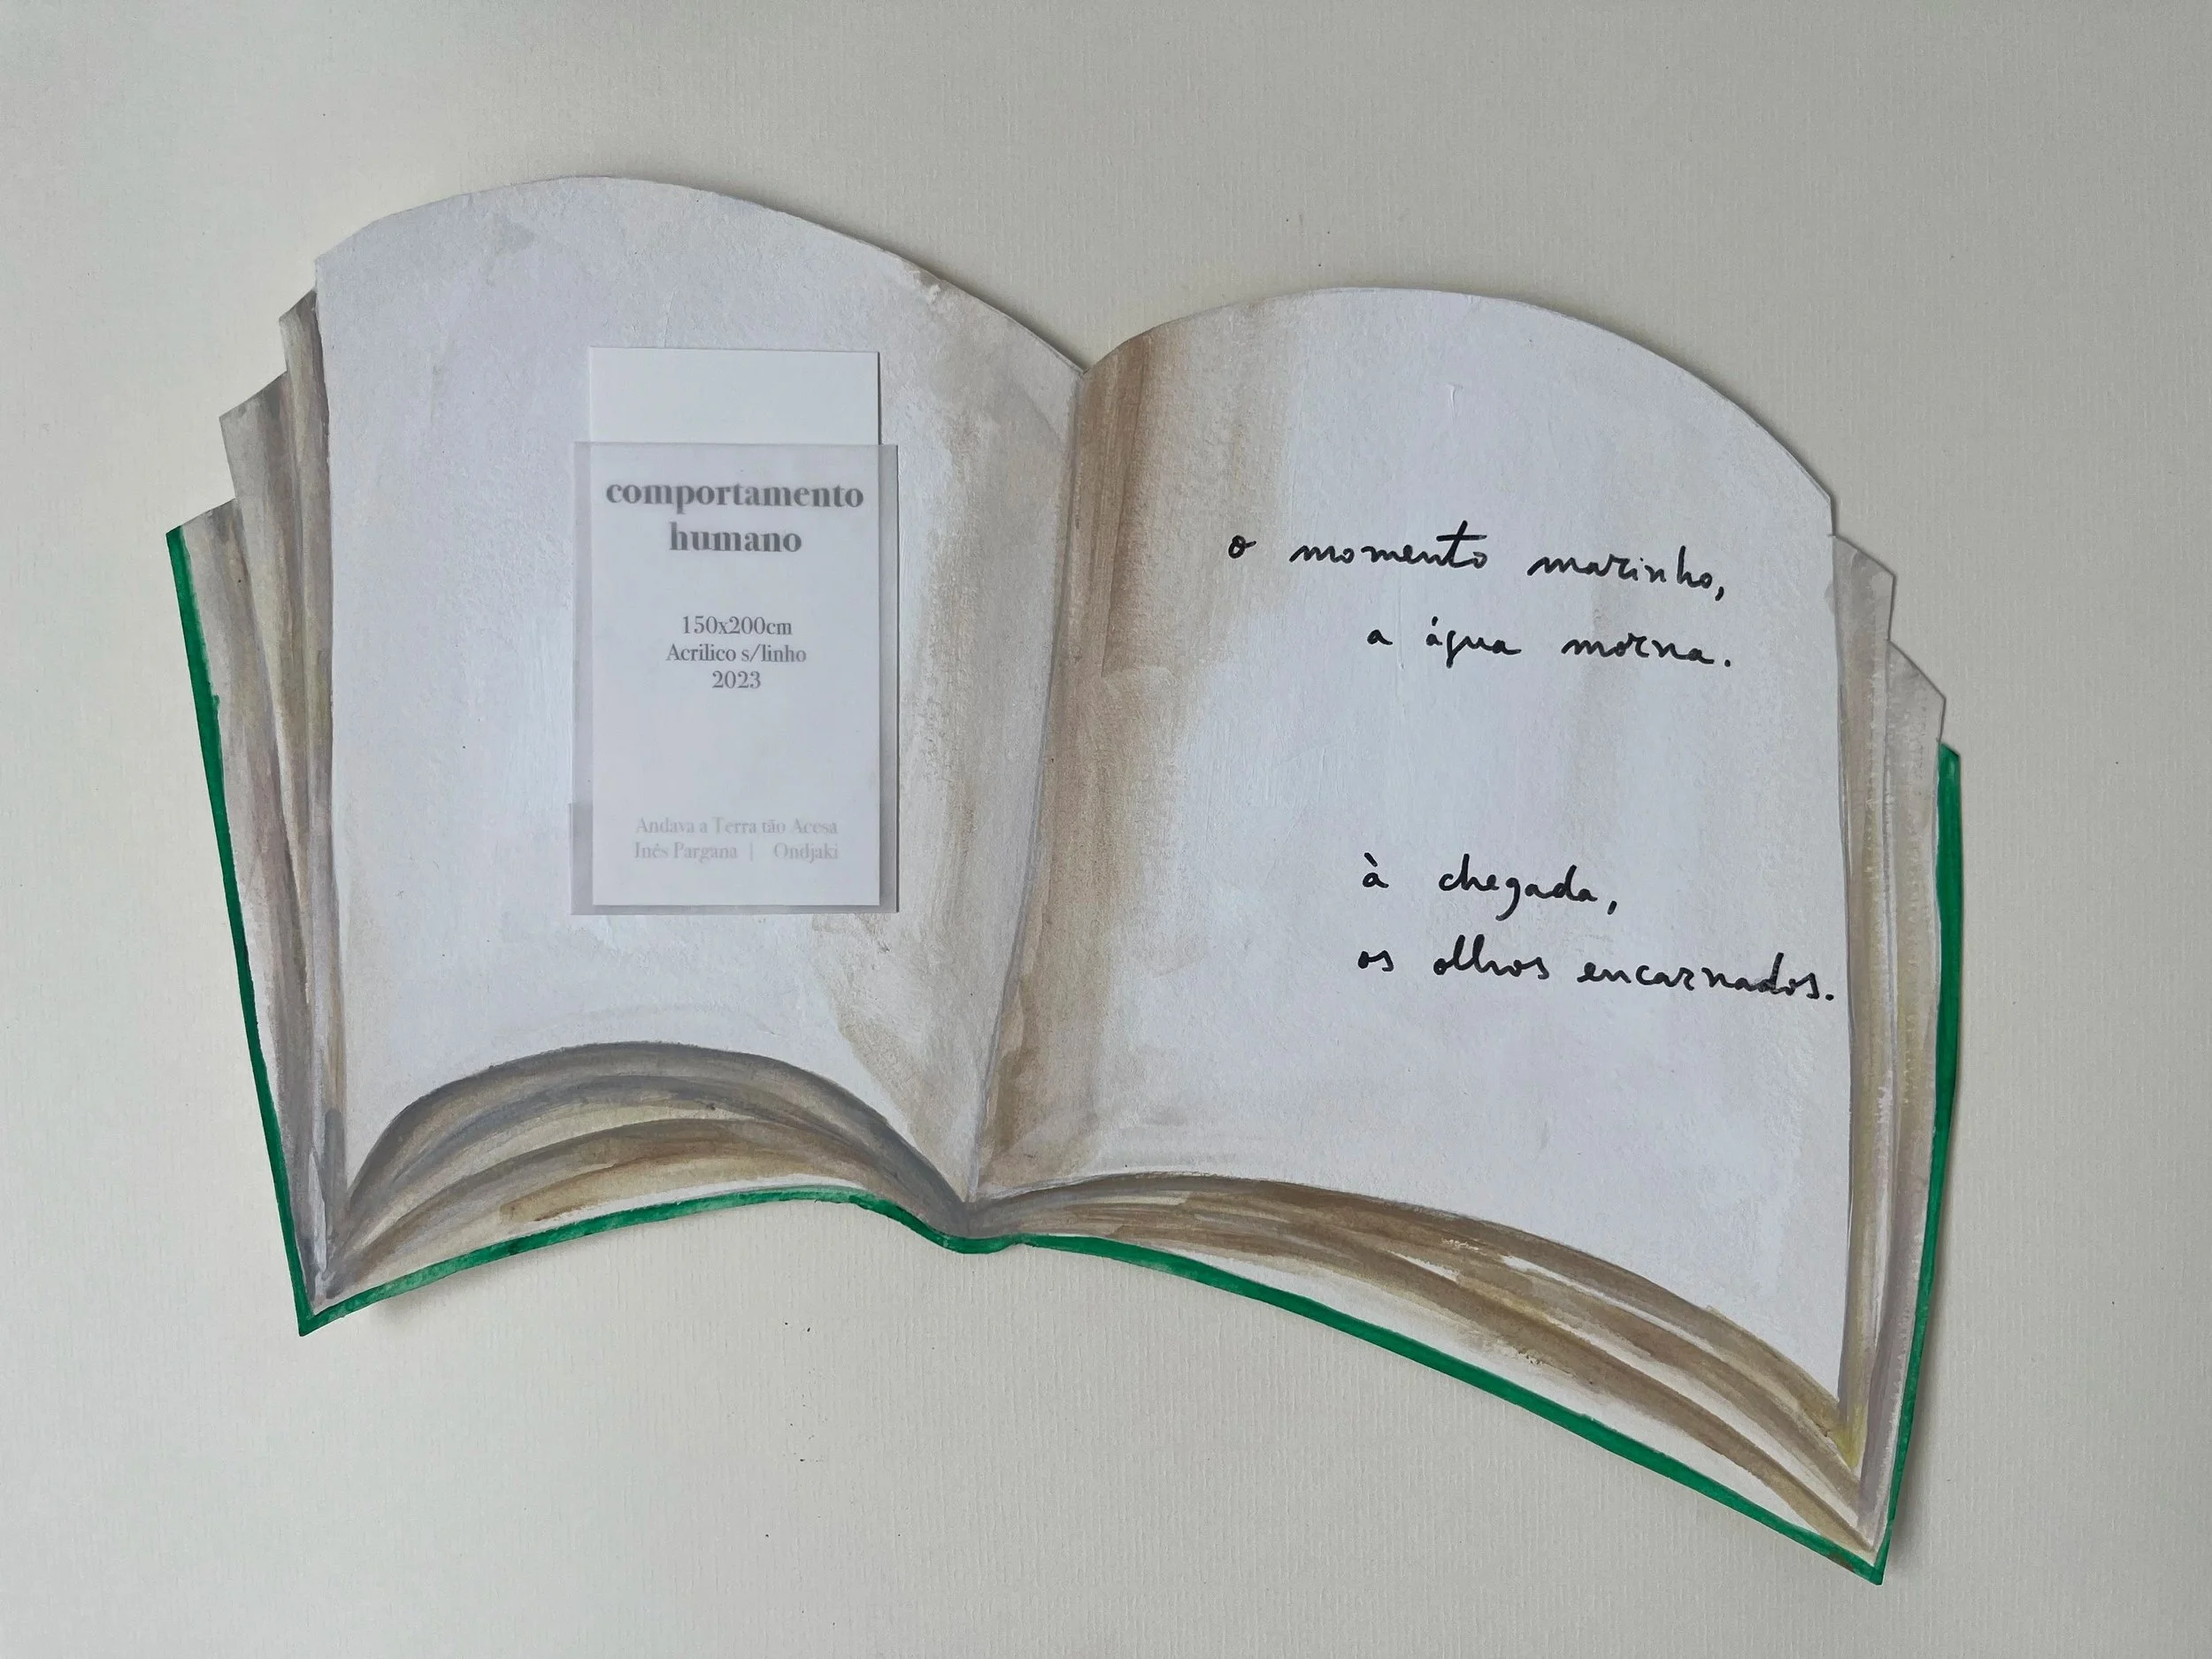 comportamento
humano
150x200cm
Acrílico s/linho
2023
Andava a Terra tão Acesa
Inês Pargana | Ondjaki
o momento marinho,
a água morna.
à chegada,
os olhos encarnados.